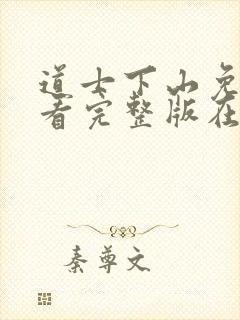 道士下山免
看完整版在
秦尊文